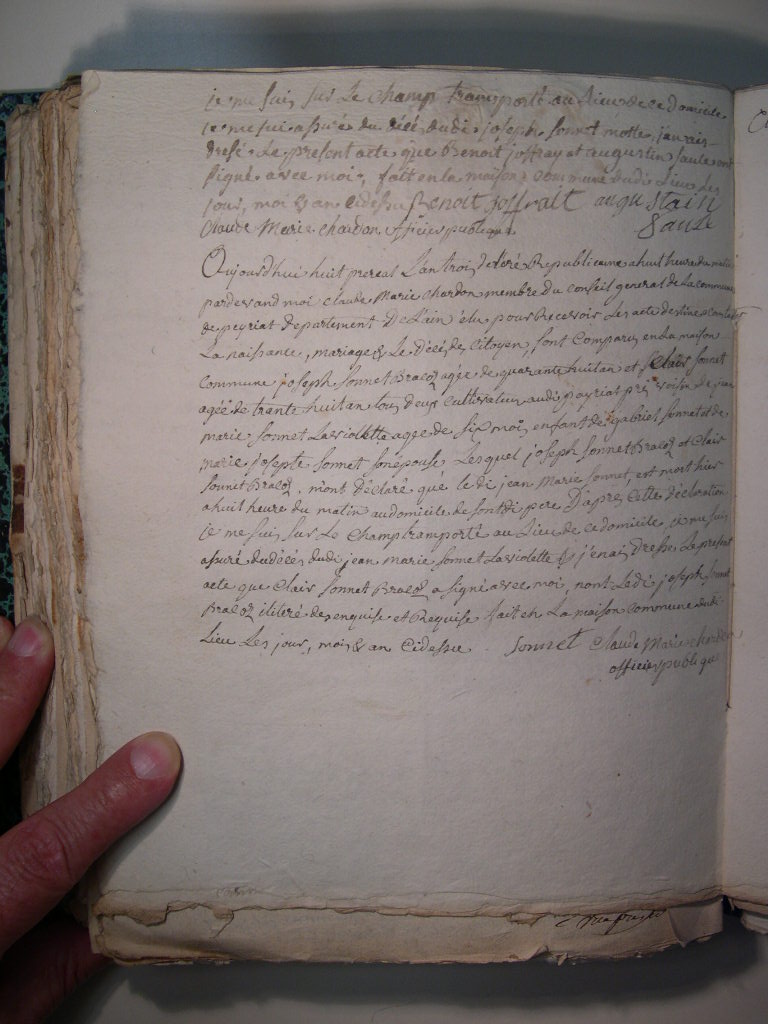 je me suis sur Le champ transporté au Lieu de ce domicile
je me sui assuré du décé dudi joseph sonnet motte, jen ais
dresé Le present acte que Benoit joffray et augustin saule ont
signé avec moi, fait en la maison commune dudi Lieu Les
jour, moi & an cidessu Benoit joffrait augustain
Claude Marie chardon officier publique. saule
Oujourdhui huit prereal L'an trois de L'eré Republicaine a huit heure du matin
pardevand moi claude Marie chardon membre du conseil general de La commune
de peyriat departement De L'ain élu pour Recevoir Les acte destiné a constater
La naissance, mariage & Le Décé de Citoyen, sont Comparu en La maison
commune joseph sonnet Braloz agée de quarante huit an et Clair sonnet
agée de trente huit an tous deux cultivateur audi peyriat pré voisin de jean
marie sonnet Laviolette agee de six moi, enfant de gabriel sonnet et de
marie josepte sonnet son épouse Lesquel joseph sonnet Braloz et Clair
sonnet Braloz, m'ont déclaré que le di jean Marie sonnet, est mort hier
a huit heure du matin au domicile de sontdi pere D'apres cette déclaration
je me suis, sur Le Champ transporté au Lieu de ce domicile, je me suis
assuré du décés dudi jean marie sonnet Laviolette & j'en ai dresse Le present
acte que Clair sonnet Braloz a signé avec moi, non Ledi joseph sonnet
Braloz iliteré de enquise et Requise fait en La maison Commune dudi
Lieu Les jour, mois & an cidessu sonnet Claude Marie chardon
officier publique